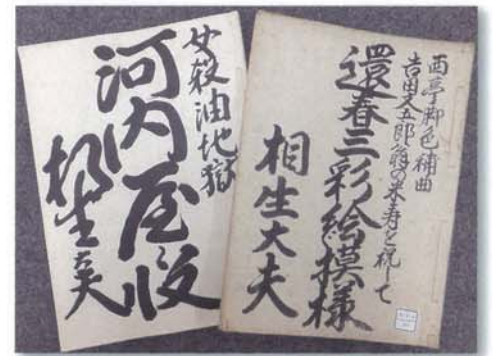 西亭脚色補曲
吉田文五郎翁の米寿を祝して
還春三彩絵模様
相生大夫
女殺油地獄
河内屋段
相生大夫